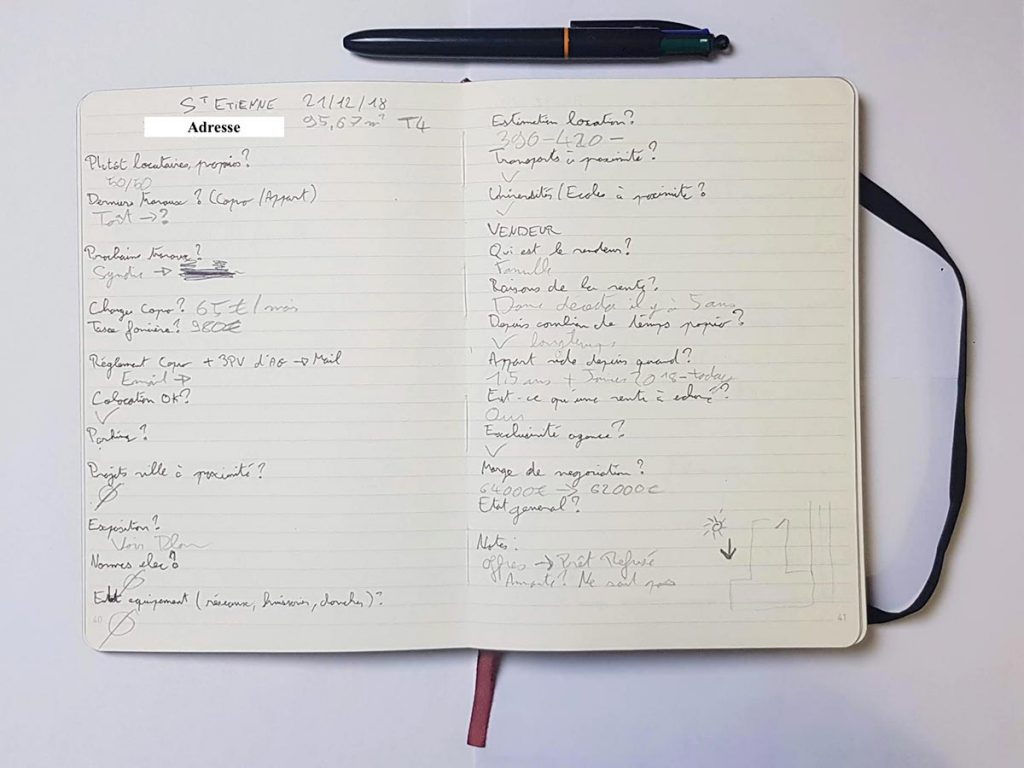 ST ETIENNE 21/12/18
Adresse 95,67 m² T4
Plutôt locataires, proprios?
50/50
Derniers travaux? (Copro/Appart)
Toit →?
Prochains travaux?
Syndic →
Charges Copro? 65€/mois
Taxe foncière? 980€
Réglement Copro + 3PV d'AG → Mail
Email →
Colocation OK?
Parking?
Projets ville à proximité?
Exposition?
Voir Plan
Normes elec?
Etat equipement (réseaux, huisseries, douches)?
40
Estimation location?
390-420-
Transports à proximité?
Universités/Ecoles à proximité?
VENDEUR
Qui est le vendeur?
Famille
Raisons de la vente?
Dame décédée il y à 5 ans
Depuis combien de temps proprio?
longtemps
Appart vide depuis quand?
1.5 ans + 2018-today
Est-ce qu'une vente à
Oui
Exclusivité agence?
Marge de negociation?
64000€ → 62000€
Etat general?
Notes:
Offres → Prêt Refusé
Amiante? Ne sait pas
41